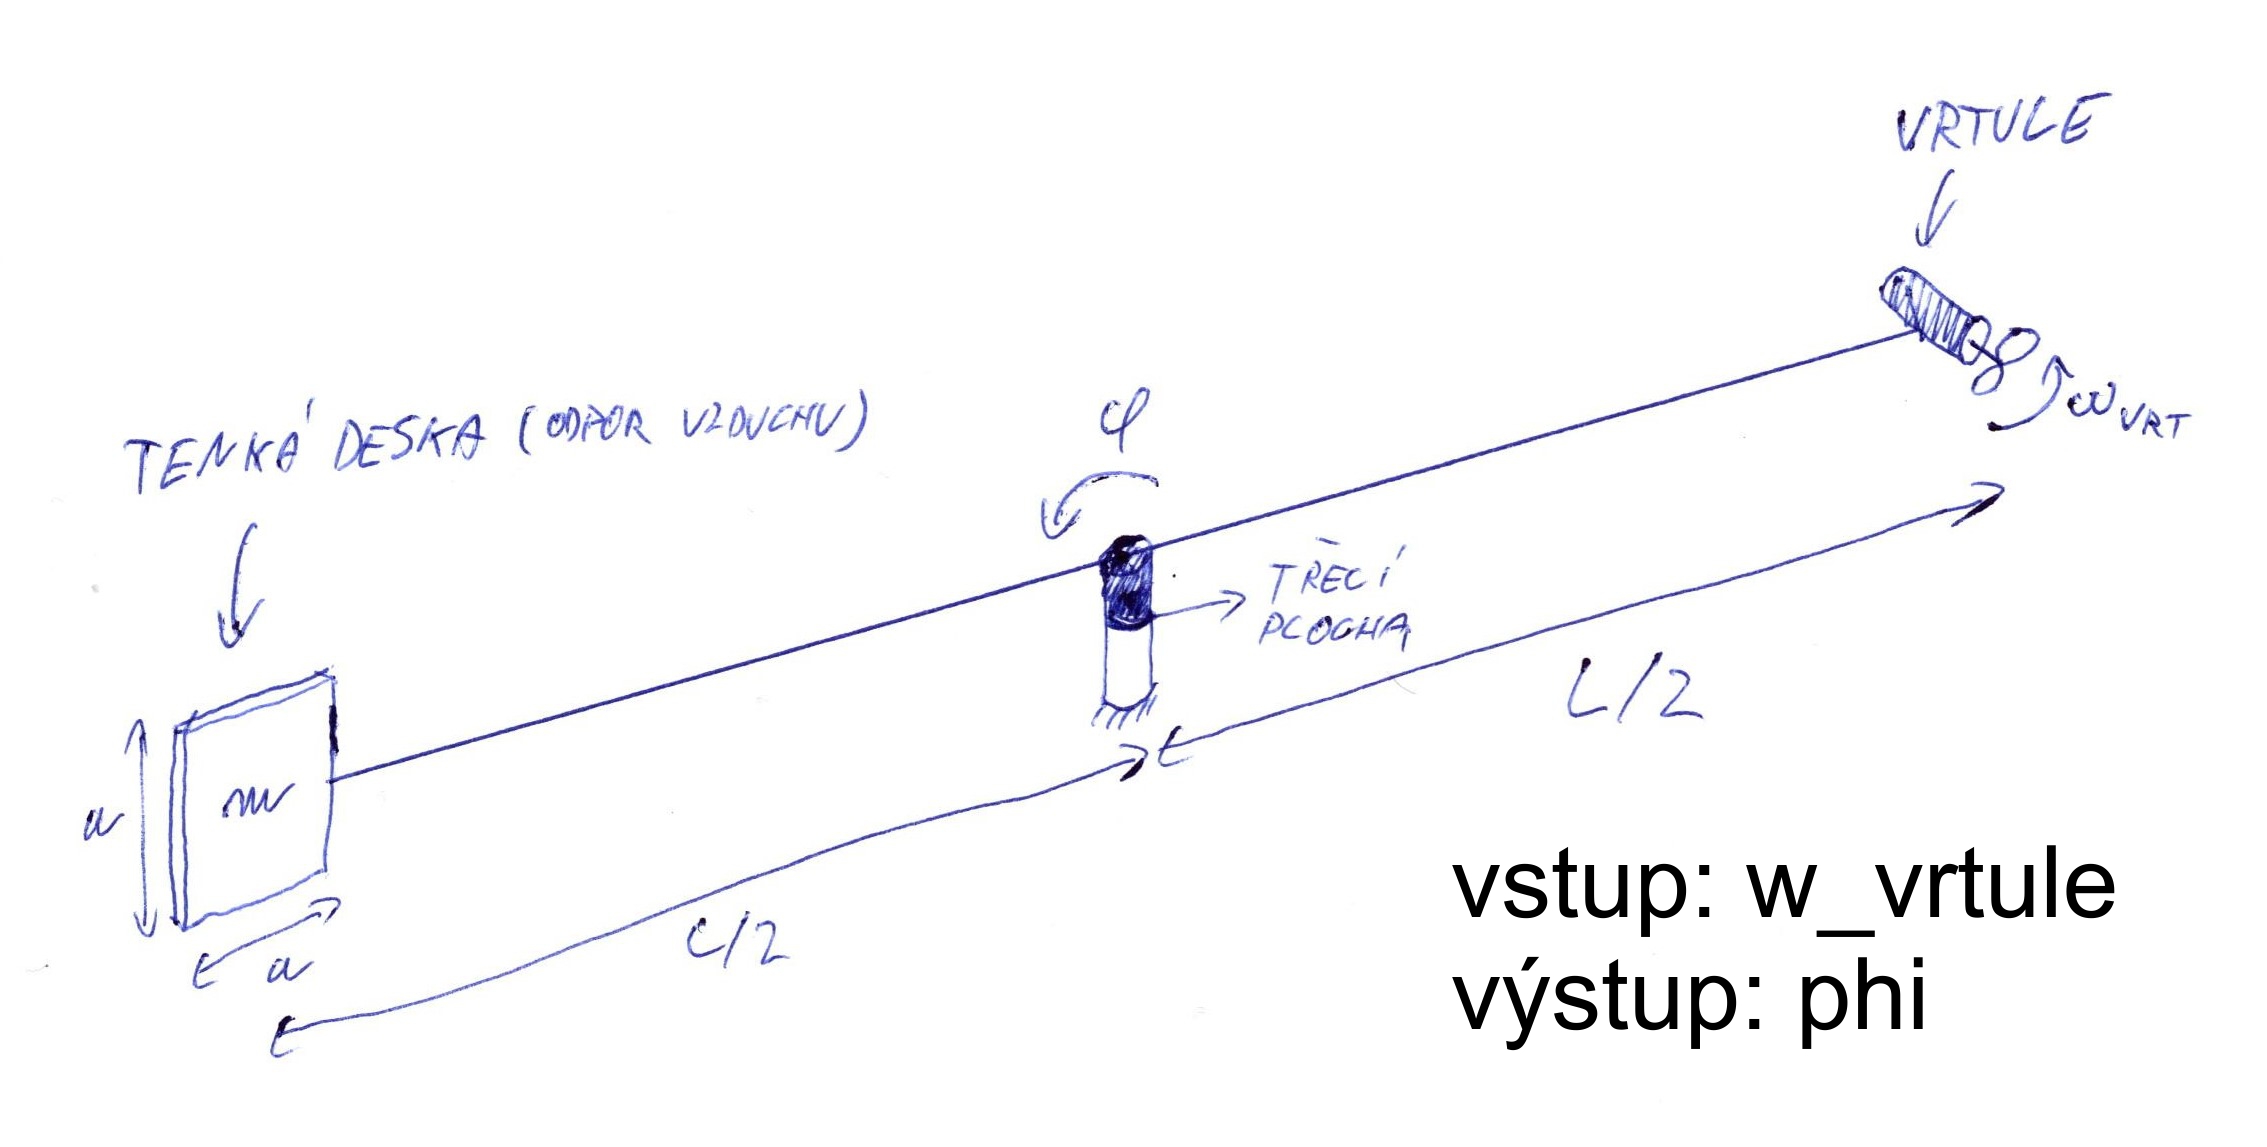 VRTULE
ω VRT
TENKÁ DESKA (ODPOR VZDUCHU)
φ
TŘECÍ
PLOCHA
L/2
m
a
a
L/2
vstup: w_vrtule
výstup: phi